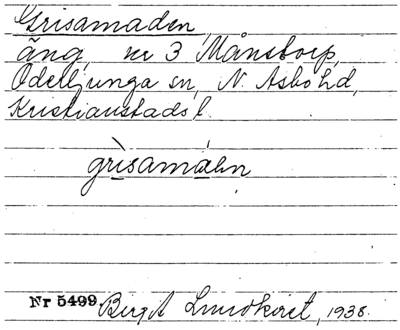 Grisamaden
äng, nr 3 Månstorp,
Örkelljunga sn, N. Åsbo hd,
Kristianstads l.
grìsamáən
Nr 5499 Birgit Lundkvist, 1938.